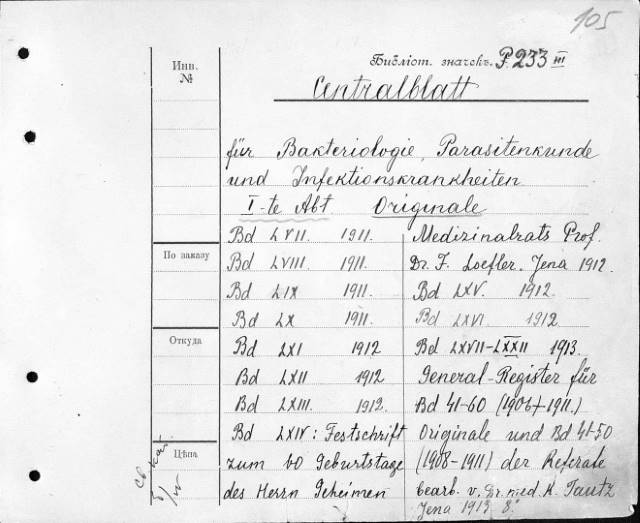 105
Библіот. значекъ. P.233 III
Centralblatt
Инв. №
für Bakteriologie, Parasitenkunde
und Infektionskrankheiten
I-te Abt. Originale
Bd LVII. 1911.
Bd LVIII. 1911.
Bd LIX 1911.
Bd LX 1911.
Bd LXI 1912
Bd LXII 1912
Bd LXIII. 1912.
Bd LXIV: Festschrift
zum 60 Geburtstage
des Herrn Geheimen
Medizinalrats Prof.
Dr. F. Loefler. Jena 1912.
Bd LXV. 1912.
Bd LXVI 1912.
Bd LXVII-LXXII 1913.
General-Register für
Bd 41-60 (1906-1911.)
Originale und Bd 41-50
(1908-1911) der Referate
bearb. v. Dr. med. K. Tautz
Jena 1913 8°
По заказу
Откуда
Цѣна